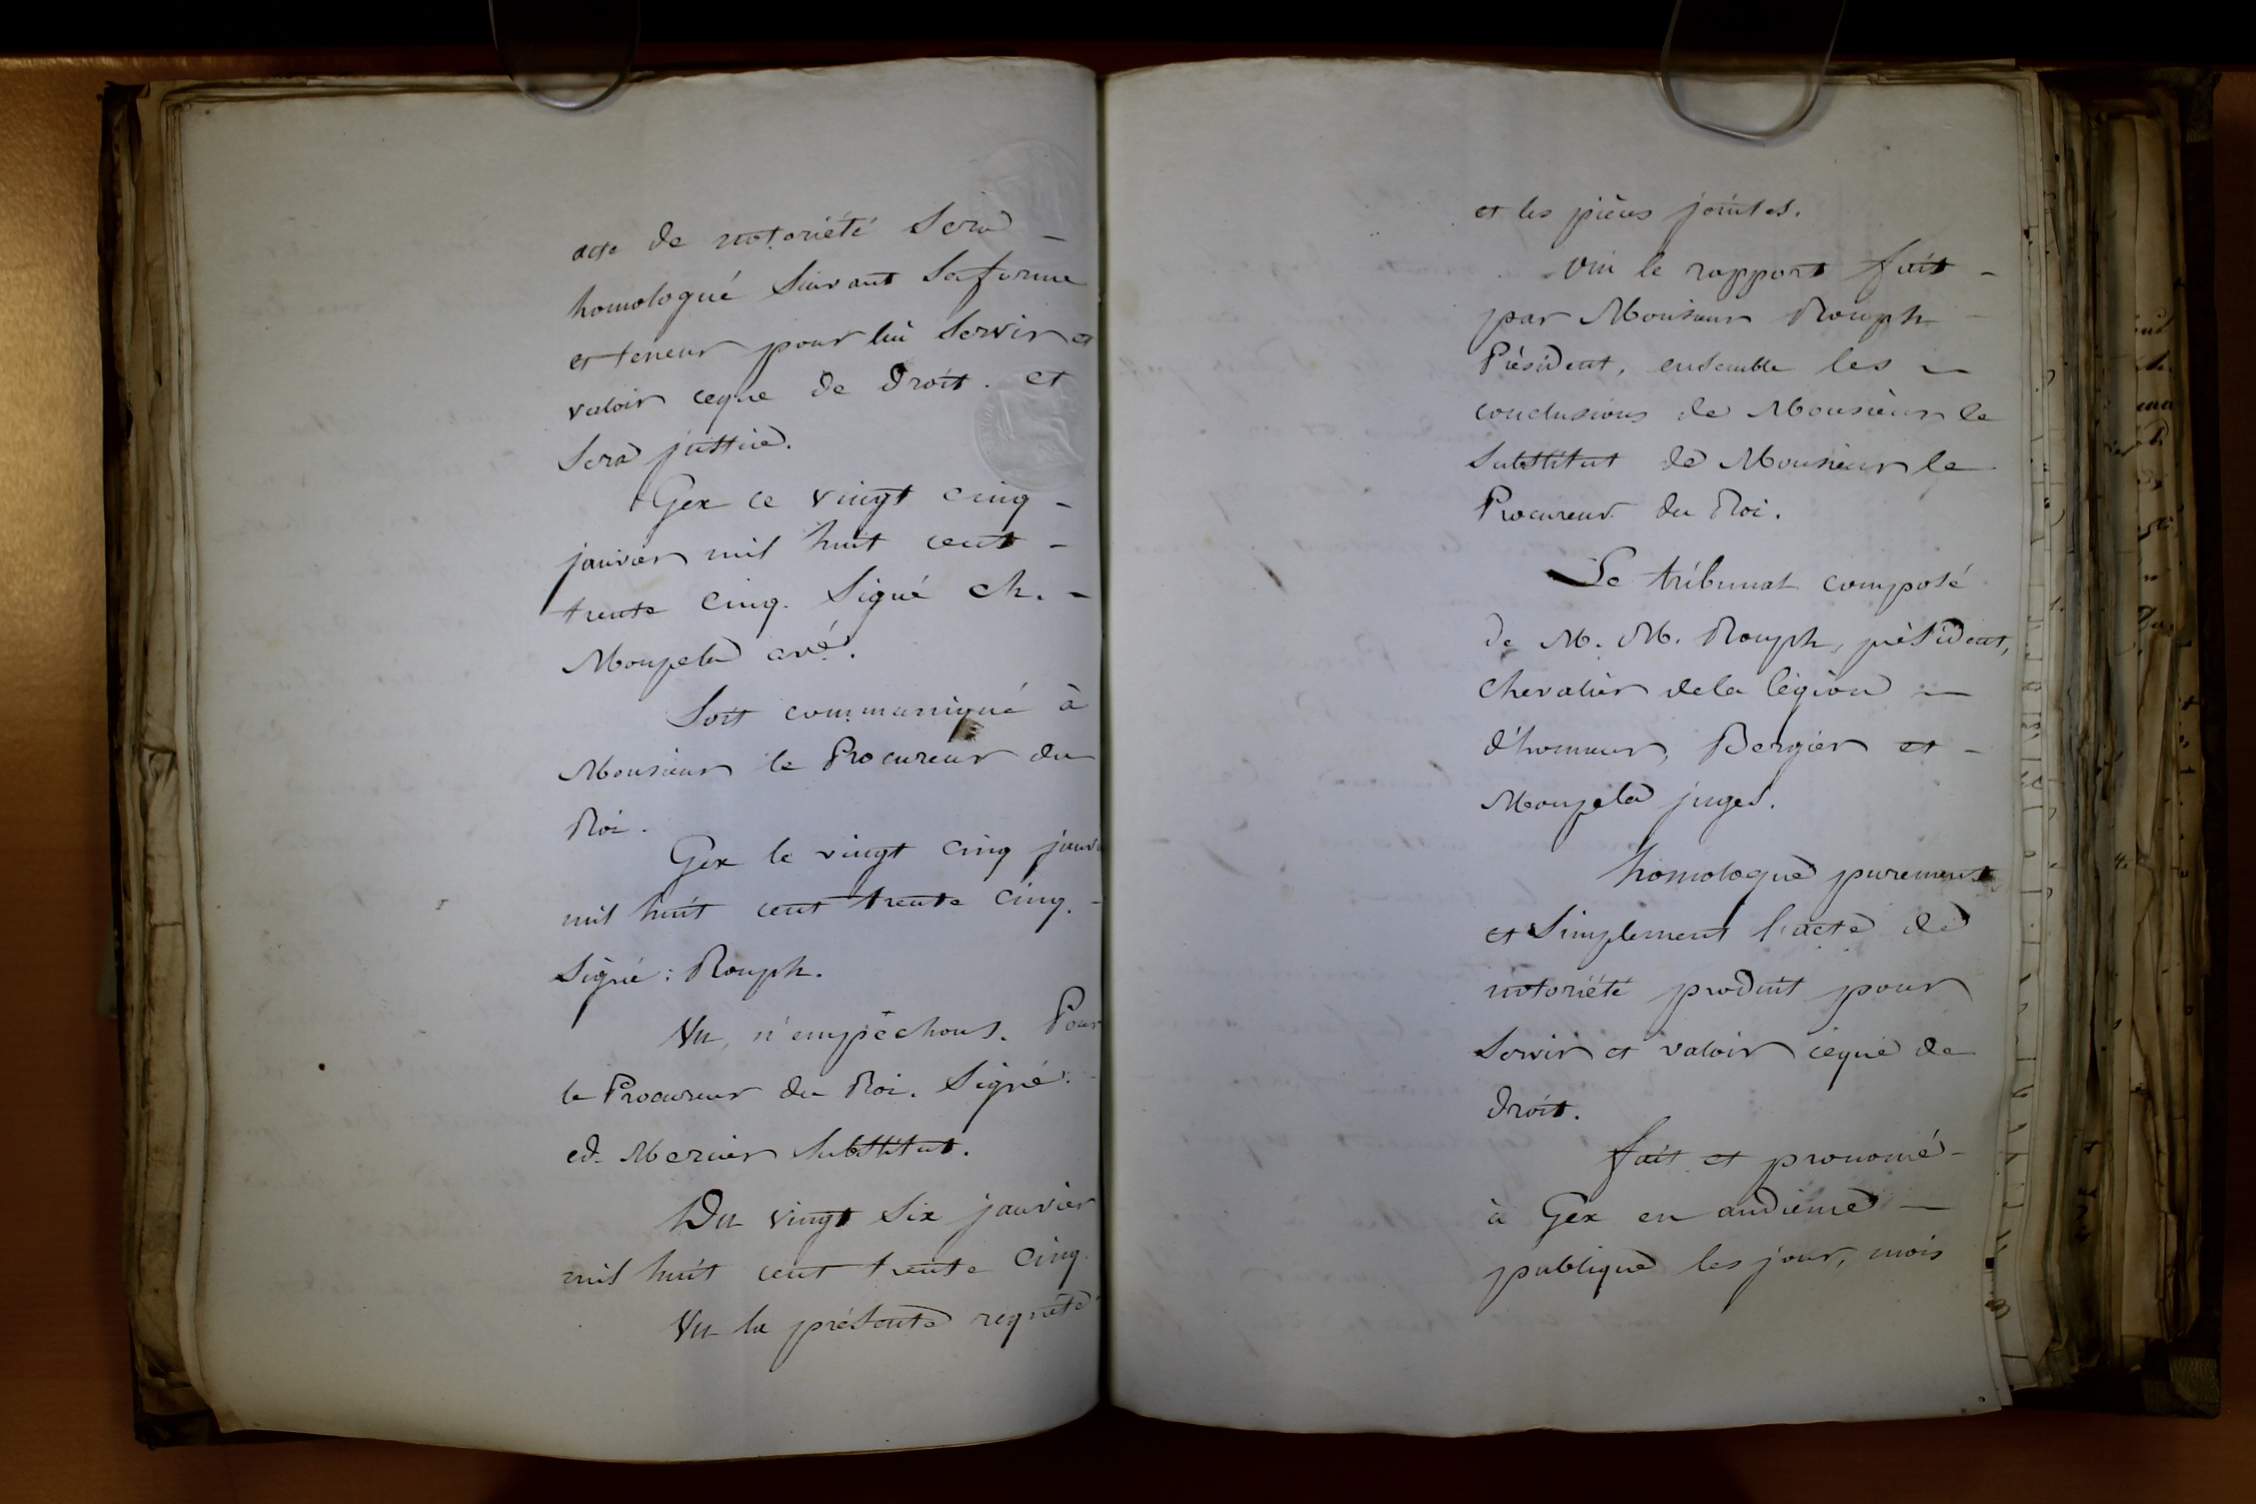 acte de notoriété sera
homologué suivant sa forme
et teneur pour lui servir et
valoir ceque de droit. et
sera justice.
Gex ce vingt cinq
janvier mil huit cent
trente cinq. Signé ch.
Moupela avé.
Soit communiqué à
Monsieur le Procureur du
Roi.
Gex le vingt cinq janv
mil huit cent trente cinq.
Signé : Rouph.
Vu, n'empêchons. Pour
le Procureur du Roi. Signé :
ed. Mercier substitut.
Du vingt six janvier
mil huit cent trente cinq.
Vu la présente requête
et les pièces jointes.
Oui le rapport fait
par Monsieur Rouph
Président, ensemble les
conclusions de Monsieur le
Substitut de Monsieur le
Procureur du Roi.
Le tribunal composé
de M. M. Rouph, président,
chevalier dela légion
d'honneur, Bergier et
Moupela juges.
homologue purement
et simplement l'acte de
notoriété produit pour
servir et valoir ceque de
droit.
fait et prononcé
à Gex en audience
publique les jour, mois